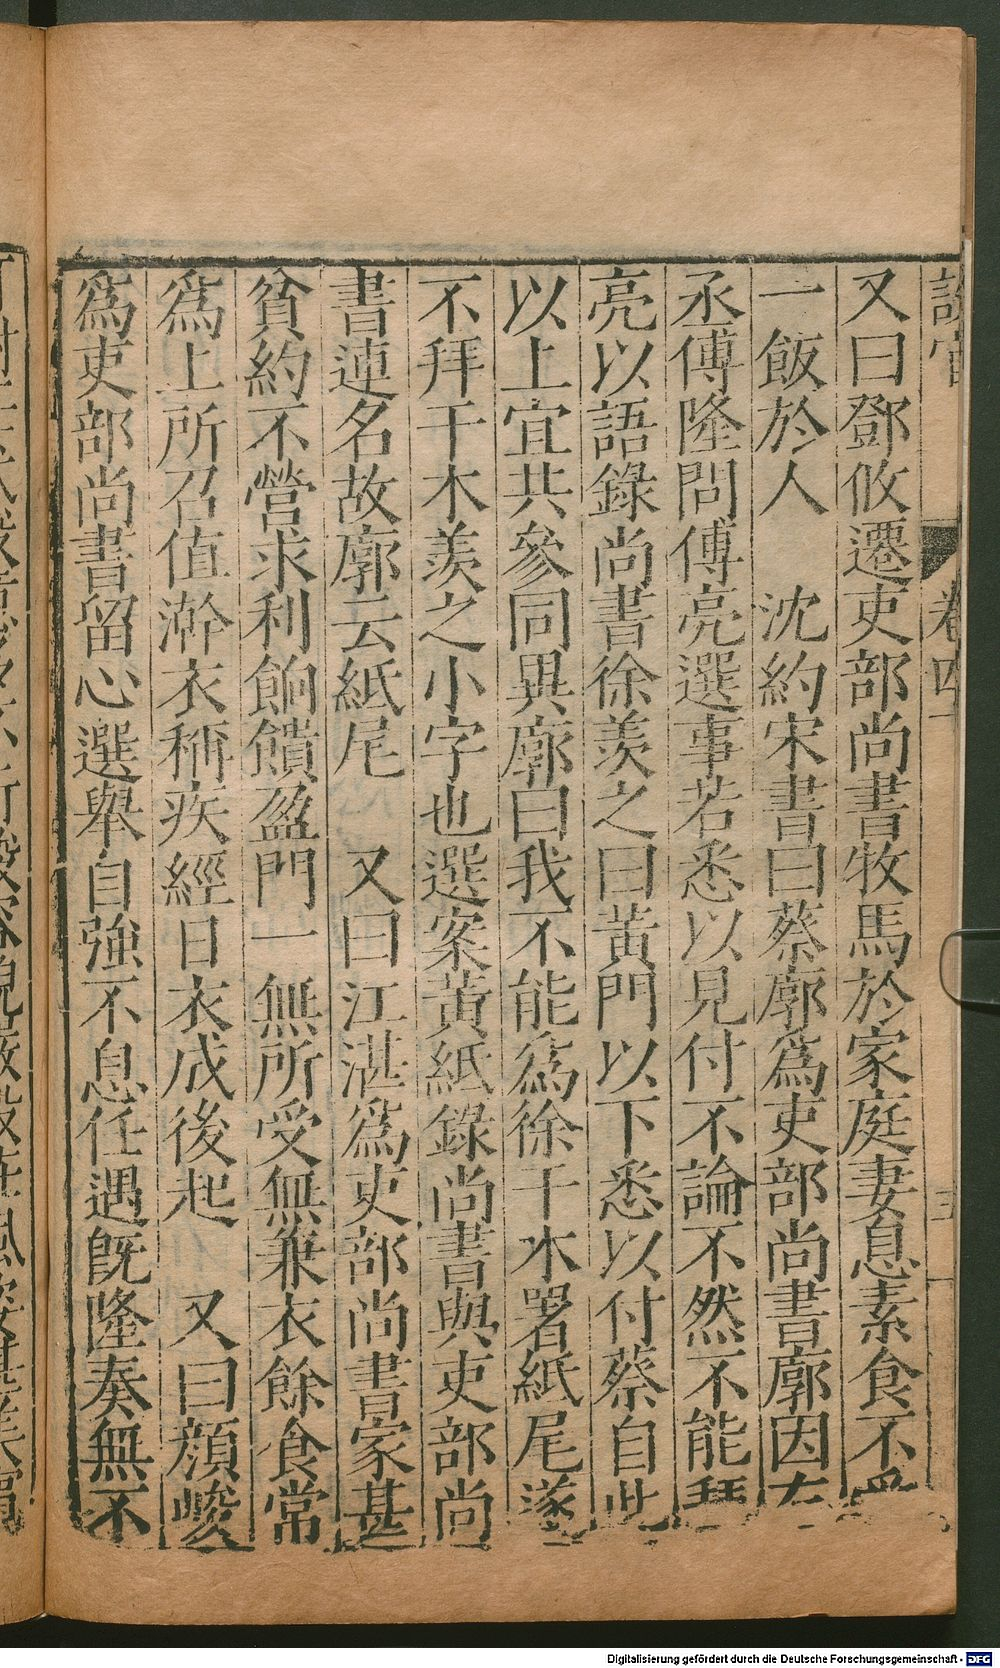 設官 卷四 三
又曰鄧攸遷吏部尚書牧馬於家庭妻息素食不受
一飯於人 沈約宋書曰蔡廓為吏部尚書廓因左
丞傅隆問傅亮選事若悉以見付不論不然不能拜
亮以語錄尚書徐羨之曰黃門以下悉以付蔡自此
以上宜共參同異廓曰我不能為徐干木署紙尾遂
不拜干木羨之小字也選案黃紙錄尚書與吏部尚
書連名故廓云紙尾 又曰江湛為吏部尚書家甚
貧約不營求利餉饋盈門一無所受無兼衣餘食常
為上所召值澣衣稱疾經日衣成後起 又曰顏峻
為吏部尚書留心選舉自強不息任遇旣隆奏無不
Digitalisierung gefördert durch die Deutsche Forschungsgemeinschaft - DFG